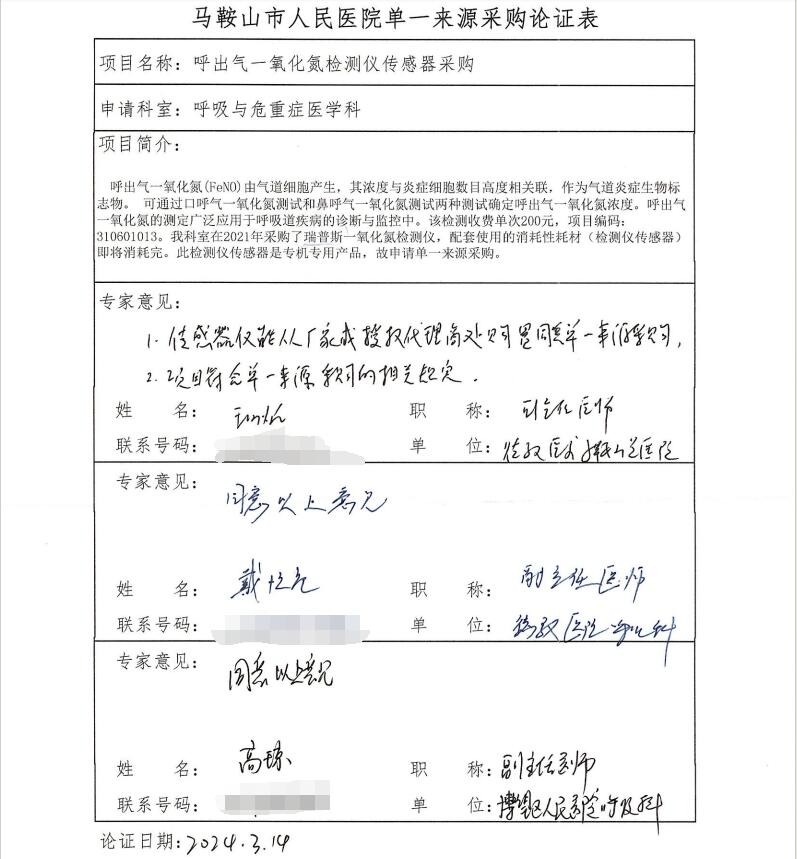 马鞍山市人民医院单一来源采购论证表
项目名称：呼出气一氧化氮检测仪传感器采购
申请科室：呼吸与危重症医学科
项目简介：
呼出气一氧化氮(FeNO)由气道细胞产生，其浓度与炎症细胞数目高度相关联，作为气道炎症生物标
志物。 可通过口呼气一氧化氮测试和鼻呼气一氧化氮测试两种测试确定呼出气一氧化氮浓度。呼出气
一氧化氮的测定广泛应用于呼吸道疾病的诊断与监控中。该检测收费单次200元，项目编码：
310601013。我科室在2021年采购了瑞普斯一氧化氮检测仪，配套使用的消耗性耗材（检测仪传感器）
即将消耗完。此检测仪传感器是专机专用产品，故申请单一来源采购。
专家意见：
1. 传感器仅能从厂家或授权代理商处购买同意单一来源采购，
2. 项目符合单一来源采购的相关规定.
姓 名： 职 称：副主任医师
联系号码： 单 位：
专家意见：
同意以上意见
姓 名：戴 职 称：副主任医师
联系号码： 单 位：
专家意见：
同意以上意见
姓 名：高琼 职 称：副主任医师
联系号码： 单 位：博望区人民医院呼吸科
论证日期：2024.3.14